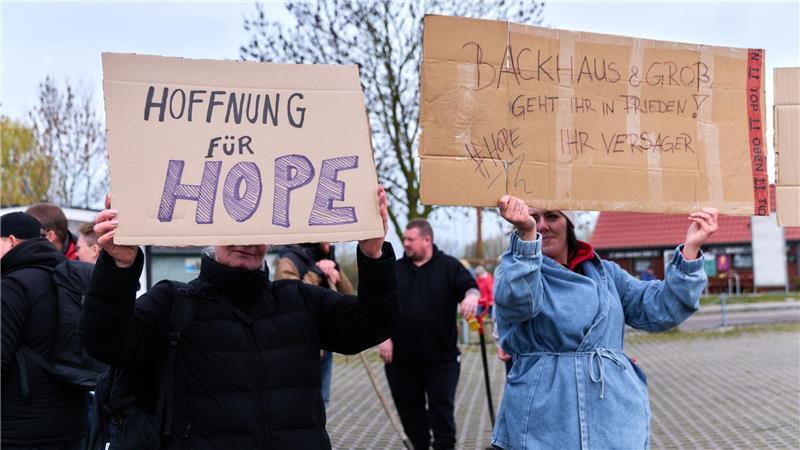 HOFFNUNG
FÜR
HOPE
BACKHAUS & GROß
GEHT IHR IN FRIEDEN!
#HOPE
IHR VERSAGER
OBEN !! TOP !! OBEN !! TO